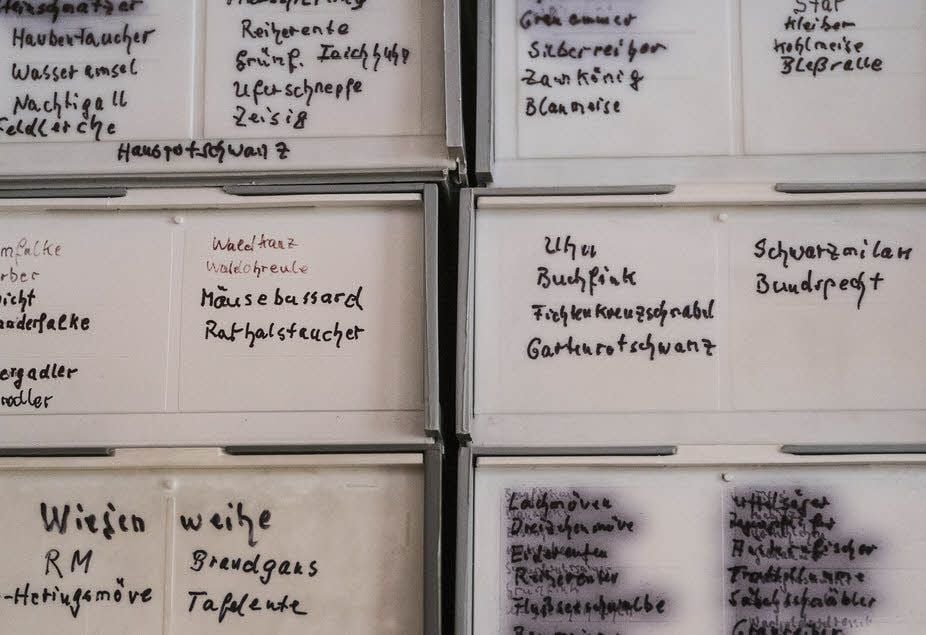 Haubentaucher
Wasseramsel
Nachtigall
Feldlerche
Reiherente
Grünf. Teichhuhn
Uferschnepfe
Zeisig
Hausrotschwanz
Grauammer
Silberreiher
Zaunkönig
Blaumeise
Star
Kleiber
Kohlmeise
Bleßralle
mfalke
erber
icht
anderfalke
ergadler
Waldkauz
Waldohreule
Mäusebussard
Rothalstaucher
Uhu
Buchfink
Fichtenkreuzschnabel
Gartenrotschwanz
Schwarzmilan
Bundspecht
Wiesen weihe
RM
-Heringsmöve
Brandgans
Tafelente
Lachmöven
Dreizehenmöve
Eiderenten
Reiherenter
Flußseeschwalbe
Mittelsäger
Austernfischer
Säbelschnäbler